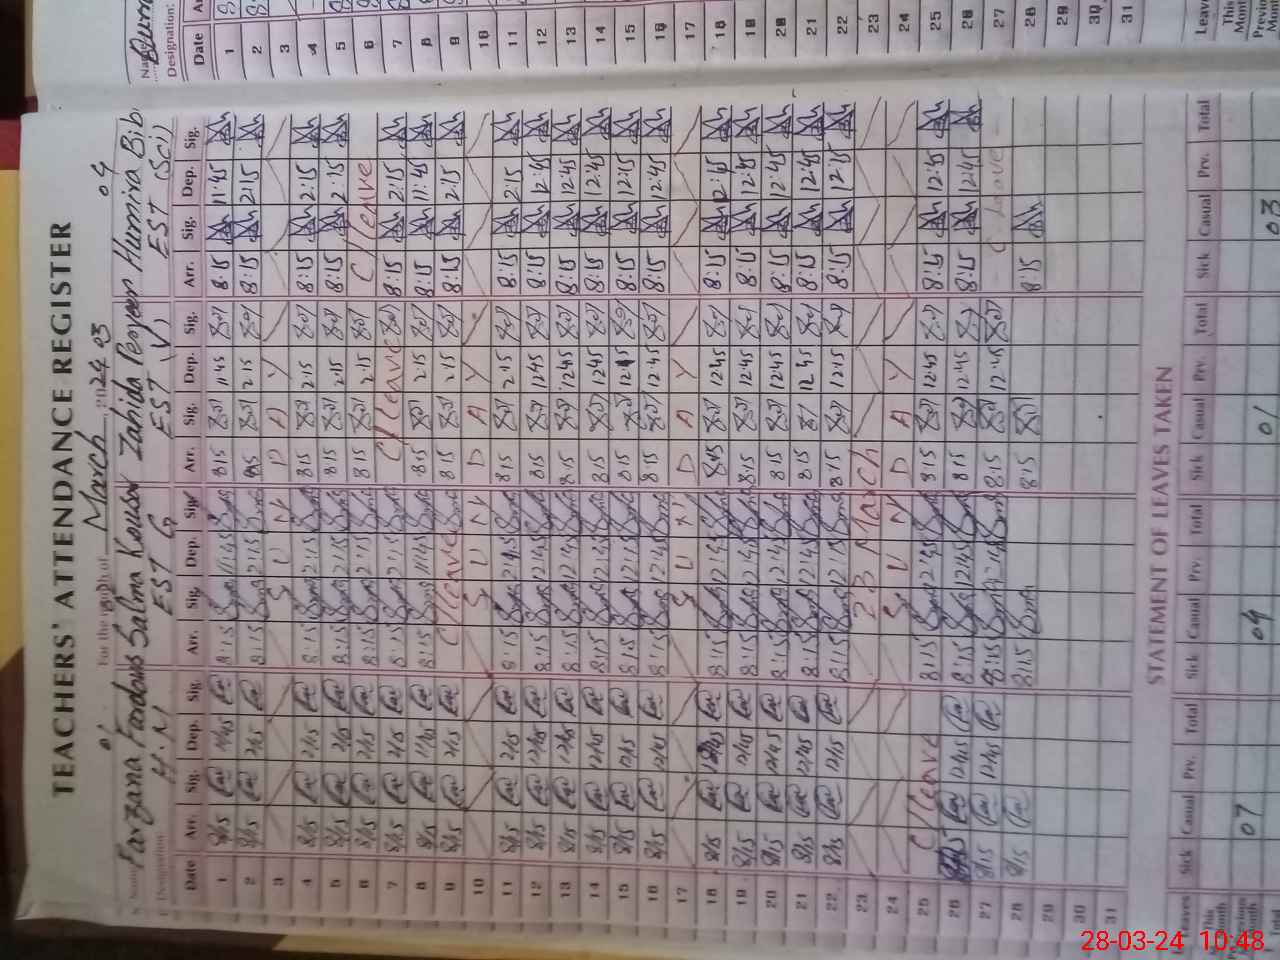 TEACHERS' ATTENDANCE REGISTER
For the month of March 2024
01 03 04
Name Farzana Fardous Salma Kousar Zahida Perveen Humira Bibi
Designation H.M EST G EST (V) EST (Sci)
Date Arr. Sig. Dep. Sig. Arr. Sig. Dep. Sig. Arr. Sig. Dep. Sig. Arr. Sig. Dep. Sig.
1 8:15 11:45 8:15 11:45 8:15 11:45 8:15 11:45
2 8:15 2:15 8:15 2:15 8:15 2:15 8:15 2:15
3 S U N D A Y
4 8:15 2:15 8:15 2:15 8:15 2:15 8:15 2:15
5 8:15 2:15 8:15 2:15 8:15 2:15 8:15 2:15
6 8:15 2:15 8:15 2:15 8:15 2:15 C/leave
7 8:15 2:15 8:15 2:15 C/leave 8:15 2:15
8 8:15 11:45 8:15 11:45 8:15 2:15 8:15 11:45
9 8:15 2:15 C/leave 8:15 2:15 8:15 2:15
10 S U N D A Y
11 8:15 2:15 8:15 2:15 8:15 2:15 8:15 2:15
12 8:15 12:45 8:15 12:45 8:15 12:45 8:15 12:45
13 8:15 12:45 8:15 12:45 8:15 12:45 8:15 12:45
14 8:15 12:45 8:15 12:45 8:15 12:45 8:15 12:45
15 8:15 12:15 8:15 12:15 8:15 12:15 8:15 12:15
16 8:15 12:45 8:15 12:45 8:15 12:45 8:15 12:45
17 S U N D A Y
18 8:15 12:45 8:15 12:45 8:15 12:45 8:15 12:45
19 8:15 12:45 8:15 12:45 8:15 12:45 8:15 12:45
20 8:15 12:45 8:15 12:45 8:15 12:45 8:15 12:45
21 8:15 12:45 8:15 12:45 8:15 12:45 8:15 12:45
22 8:15 12:15 8:15 12:15 8:15 12:15 8:15 12:15
23 23 March
24 S U N D A Y
25 C/leave 8:15 12:45 8:15 12:45 8:15 12:45
26 8:15 12:45 8:15 12:45 8:15 12:45 8:15 12:45
27 8:15 12:45 8:15 12:45 8:15 12:45 C. Leave
28 8:15 8:15 8:15 8:15
29
30
31
STATEMENT OF LEAVES TAKEN
Leaves Sick Casual Prv. Total Sick Casual Prv. Total Sick Casual Prv. Total Sick Casual Prv. Total
This Month
Previous Month 07 04 01 03
Total
Designation:
Date
1
2
3
4
5
6
7
8
9
10
11
12
13
14
15
16
17
18
19
20
21
22
23
24
25
26
27
28
29
30
31
Leaves
This Month
28-03-24 10:48